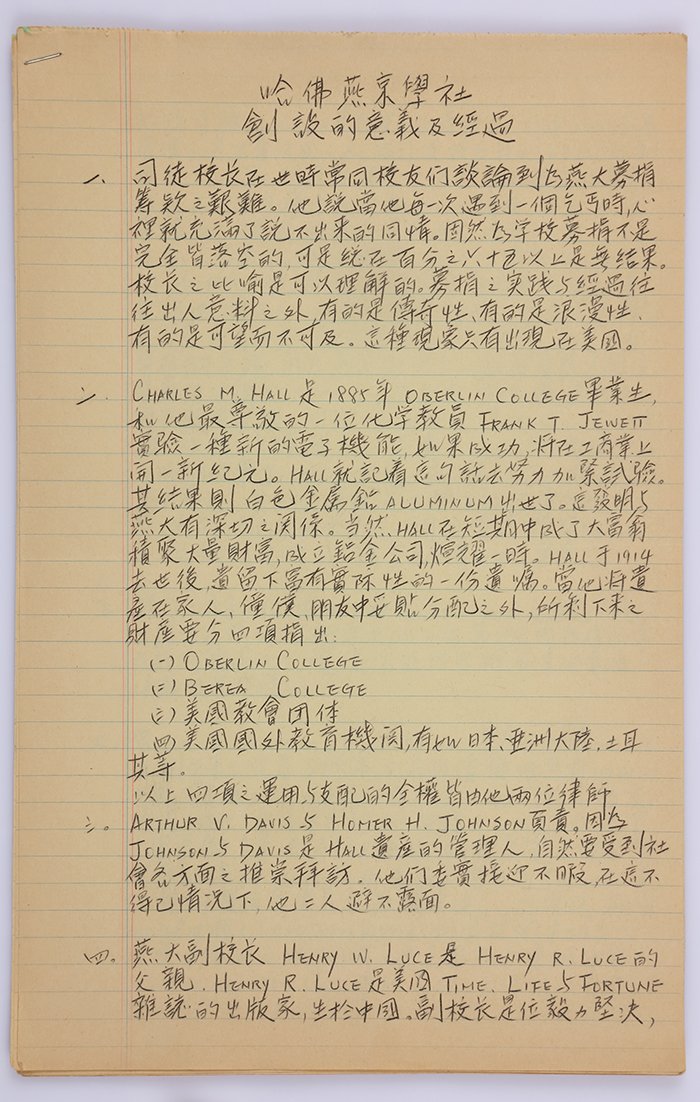 哈佛燕京學社
創設的意義及經過
一、司徒校长在世時常同校友们談論到为燕大募捐
籌欵之艱難。他説當他每一次遇到一個乞丐時,心
裡就充滿了說不出来的同情。固然为学校募捐不是
完全皆落空的,可是總在百分之六十五以上是無結果。
校长之比喻是可以理解的。募捐之实践与經過往
往出人意料之外,有的是傳奇性、有的是浪漫性、
有的是可望而不可及。這種現象只有出現在美國。
二、CHARLES M. HALL 是 1885年 OBERLIN COLLEGE 畢業生,
和他最尊敬的一位化学教員 FRANK T. JEWETT
實驗一種新的電子機能,如果成功,将在工商業上
開一新紀元。HALL 就記着這句話去努力加緊試驗。
其結果則白色金属鋁 ALUMINUM 出世了。這發明与
燕大有深切之関係。当然 HALL 在短期中成了大富翁
積聚大量財富,成立鋁金公司,煊耀一時。HALL 于1914
去世後,遺留下富有實际性的一份遺囑。當他将遺
產在家人、僮僕、朋友中妥貼分配之外,所剩下来之
財產要分四項指出:
(一) OBERLIN COLLEGE
(二) BEREA COLLEGE
(三) 美國教會团体
(四) 美國國外教育機関,有如日本、亜洲大陸、土耳
其等。
以上四項之運用与支配的全權皆由他兩位律師
三。ARTHUR V. DAVIS 与 HOMER H. JOHNSON 負責。因为
JOHNSON 与 DAVIS 是 HALL 遺產的管理人,自然要受到社
會各方面之推崇拜訪。他们委實接迎不暇,在這不
得已情况下,他二人避不露面。
四。燕大副校长 HENRY W. LUCE 是 HENRY R. LUCE 的
父親. HENRY R. LUCE 是美國 TIME. LIFE 与 FORTUNE
雜誌的出版家,生於中國。副校长是位毅力堅决,